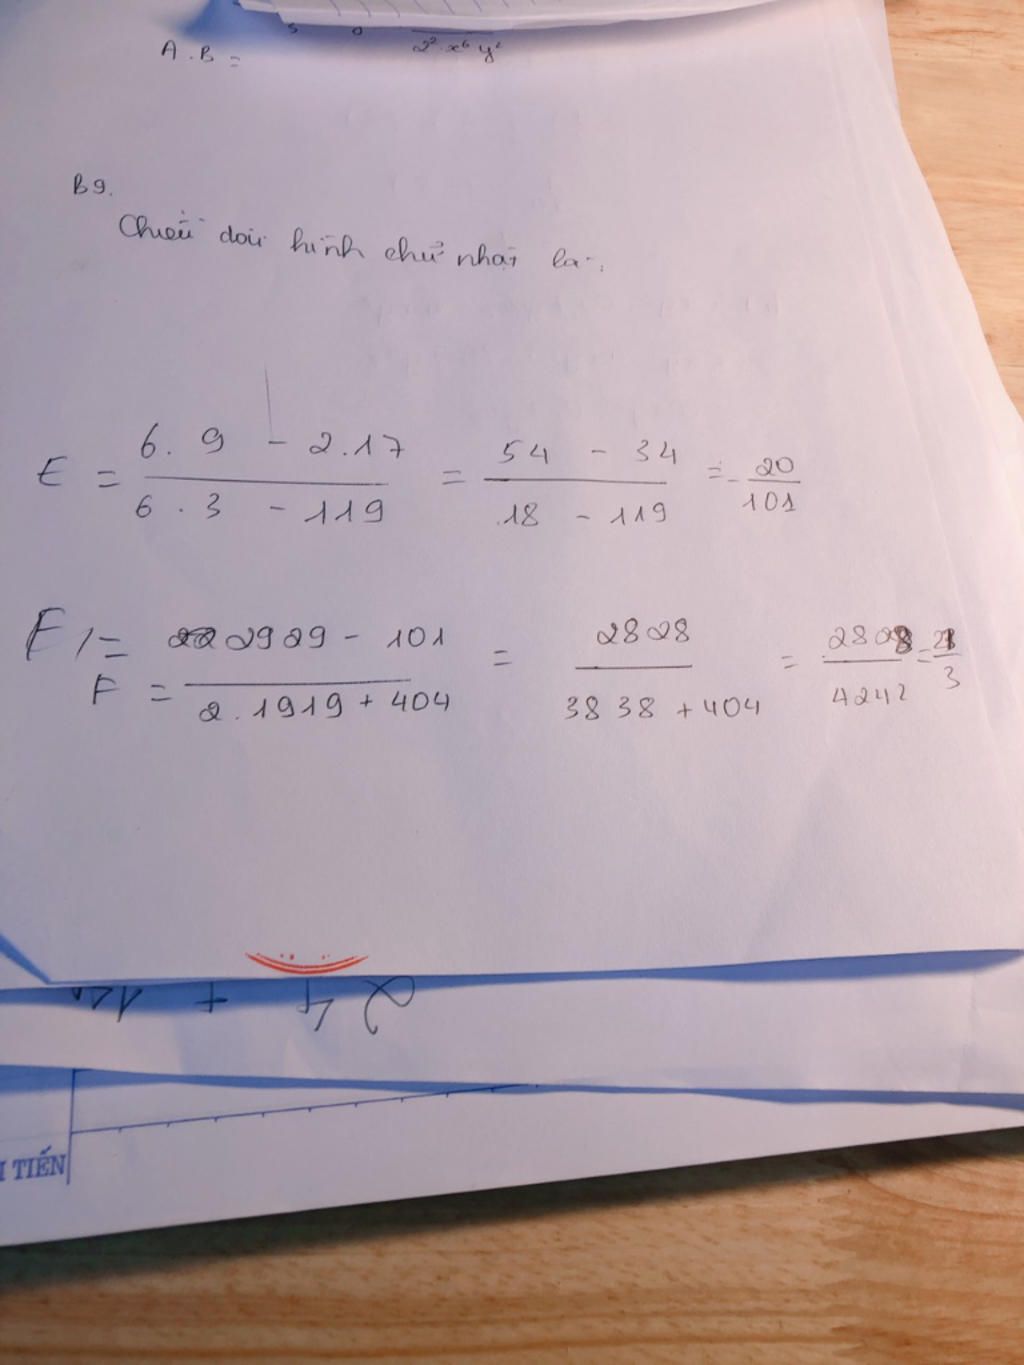 A.B =
2². x⁶ y²
B9.
Chiều dài hình chữ nhật là:
E = 6. 9 - 2.17 / 6 . 3 - 119 = 54 - 34 / 18 - 119 = - 20 / 101
F =
F = 2929 - 101 / 2 . 1919 + 404 = 2828 / 3838 + 404 = 2828 / 4242 = 2 / 3
24 +
I TIẾN